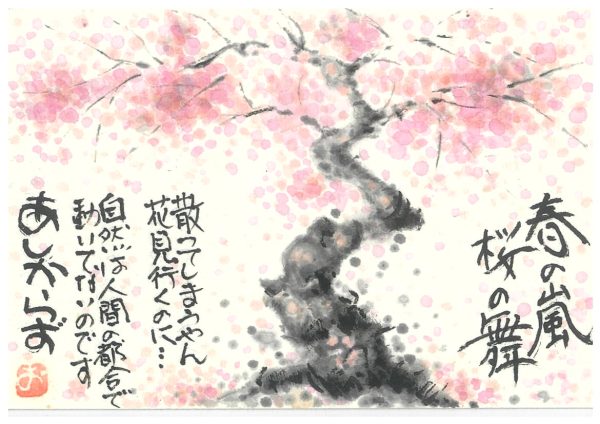 春の嵐
桜の舞
散ってしまうやん
花見行くのに…
自然は人間の都合で
動いてないのです
あしからず
ま